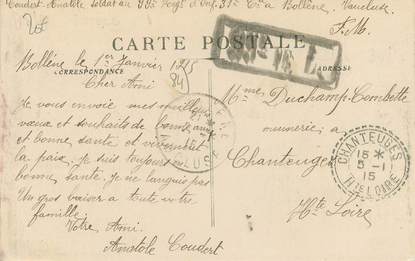 20f
Coudert Anatole soldat au 99e Reg. d'Inf. 31e Cie à Bollène, Vaucluse
F.M.
CARTE POSTALE
CORRESPONDANCE
ADRESSE
Bollène le 1er Janvier 1915
(84)
Cher Ami
Je vous envoie mes meilleurs
vœux et souhaits de bonne année
et bonne santé et vivement
la paix. Je suis toujours en
bonne santé. Je ne languis pas
Un gros baiser a toute votre
famille.
Votre Ami.
Anatole Coudert
Mme Duchamp-Combette
meunerie a
Chanteuges
Hte Loire
CHANTEUGES
15 *
5 - 1
15
HTE LOIRE